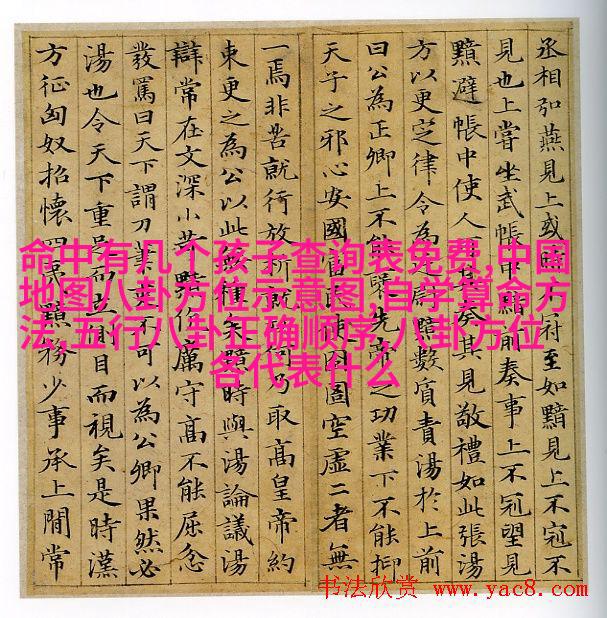 丞相弘燕見上或時不冠至如黯見上不冠不
見也上嘗坐武帳中黯前奏事上不冠望見
黯避帳中使人可其奏其見敬禮如此張湯
方以更定律令為廷尉黯數質責湯於上前
曰公為正卿上不能褒先帝之功業下不能抑
天子之邪心安國富民使囹圄空虛二者無
一焉非苦就行放析就功何乃取高皇帝約
束更之為公以此無種矣黯時與湯論議湯
辯常在文深小苛黯伉厲守高不能屈忿
發罵曰天下謂刀筆吏不可以為公卿果然必
湯也令天下重足而立側目而視矣是時漢
方征匈奴招懷四夷黯務少事承上閒常
命中有几个孩子查询表免费,中国
地图八卦方位示意图,自学算命方
法,五行八卦正确顺序,八卦方位
各代表什么
书法欣赏 www.yac8.com